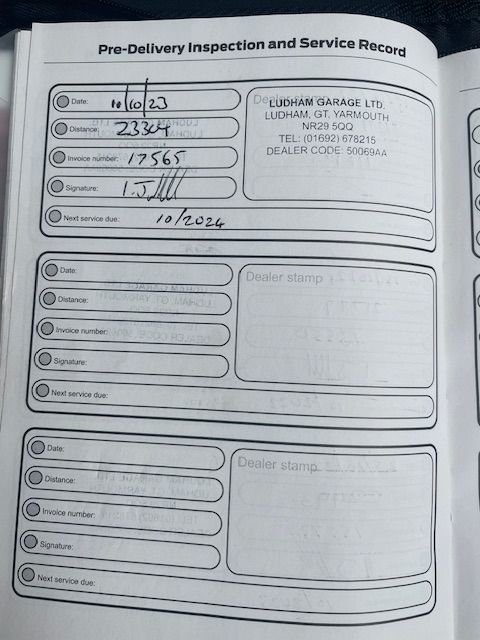 Pre-Delivery Inspection and Service Record
Date: 10/10/23
Distance: 23304
Invoice number: 17565
Signature:
Next service due: 10/2024
Dealer stamp
LUDHAM GARAGE LTD.
LUDHAM, GT. YARMOUTH
NR29 5QQ
TEL: (01692) 678215
DEALER CODE: 50069AA
Date:
Distance:
Invoice number:
Signature:
Next service due:
Dealer stamp
Date:
Distance:
Invoice number:
Signature:
Next service due:
Dealer stamp